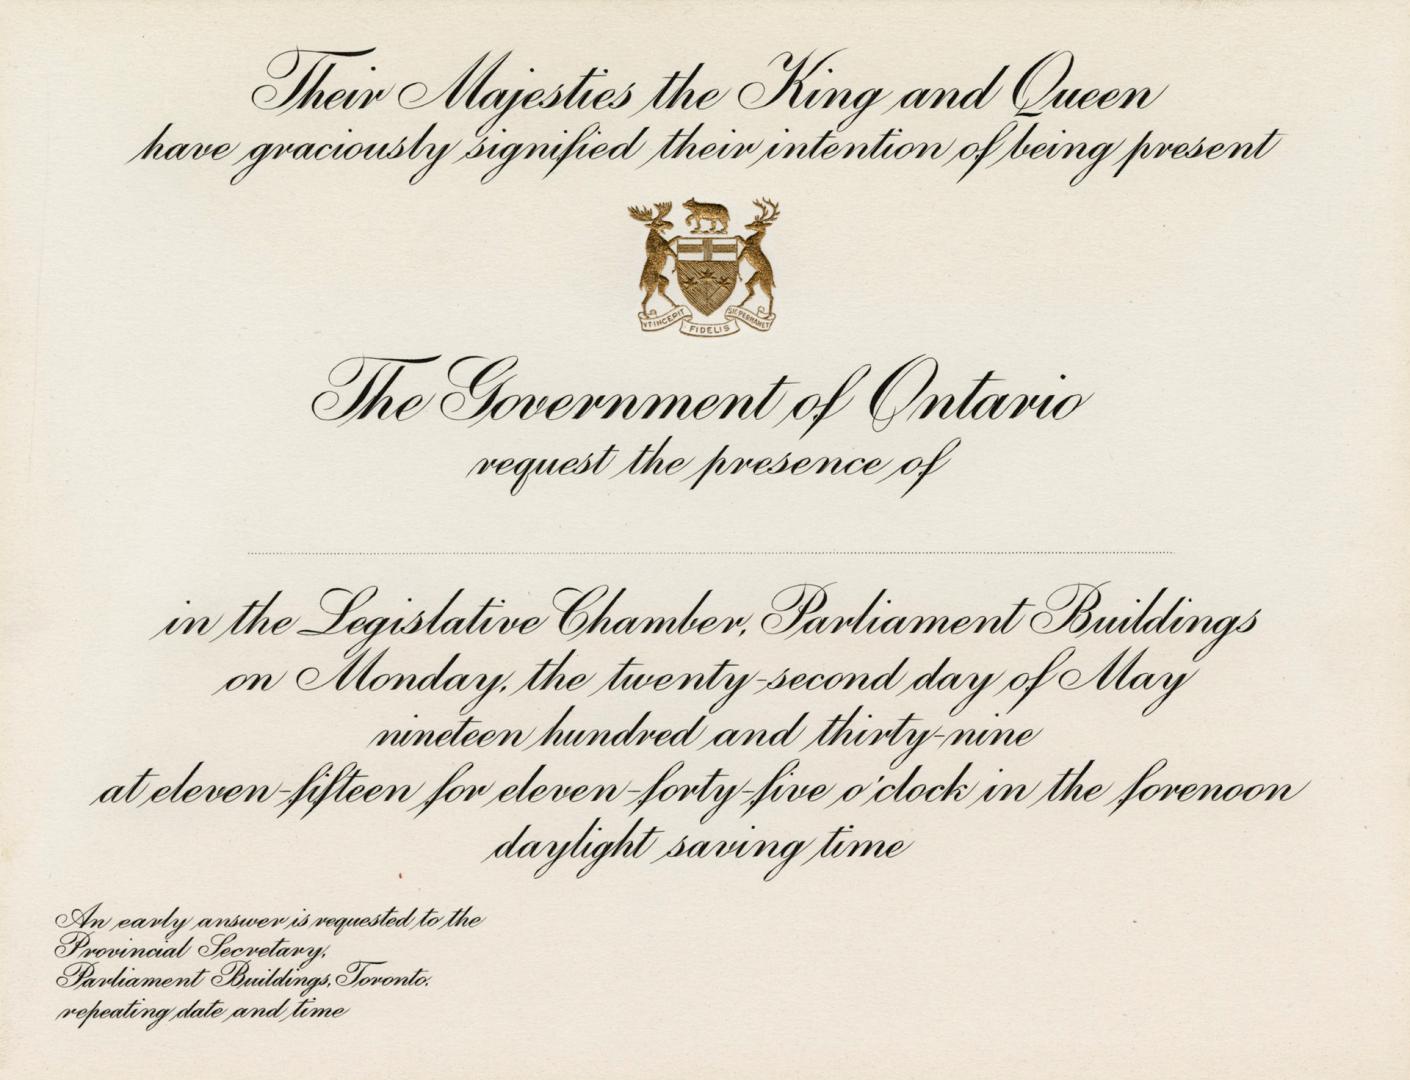 Their Majesties the King and Queen
have graciously signified their intention of being present
VT·INCEPIT FIDELIS SIC·PERMANET
The Government of Ontario
request the presence of
in the Legislative Chamber, Parliament Buildings
on Monday, the twenty-second day of May
nineteen hundred and thirty-nine
at eleven-fifteen for eleven-forty-five o'clock in the forenoon
daylight saving time
An early answer is requested to the
Provincial Secretary,
Parliament Buildings, Toronto,
repeating date and time